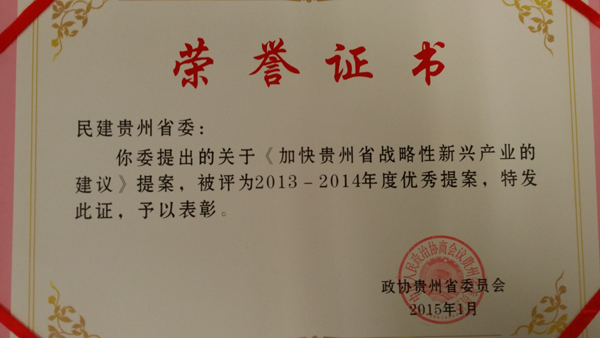 荣誉证书
民建贵州省委：
你委提出的关于《加快贵州省战略性新兴产业的
建议》提案，被评为2013－2014年度优秀提案，特发
此证，予以表彰。
政协贵州省委员会
2015年1月